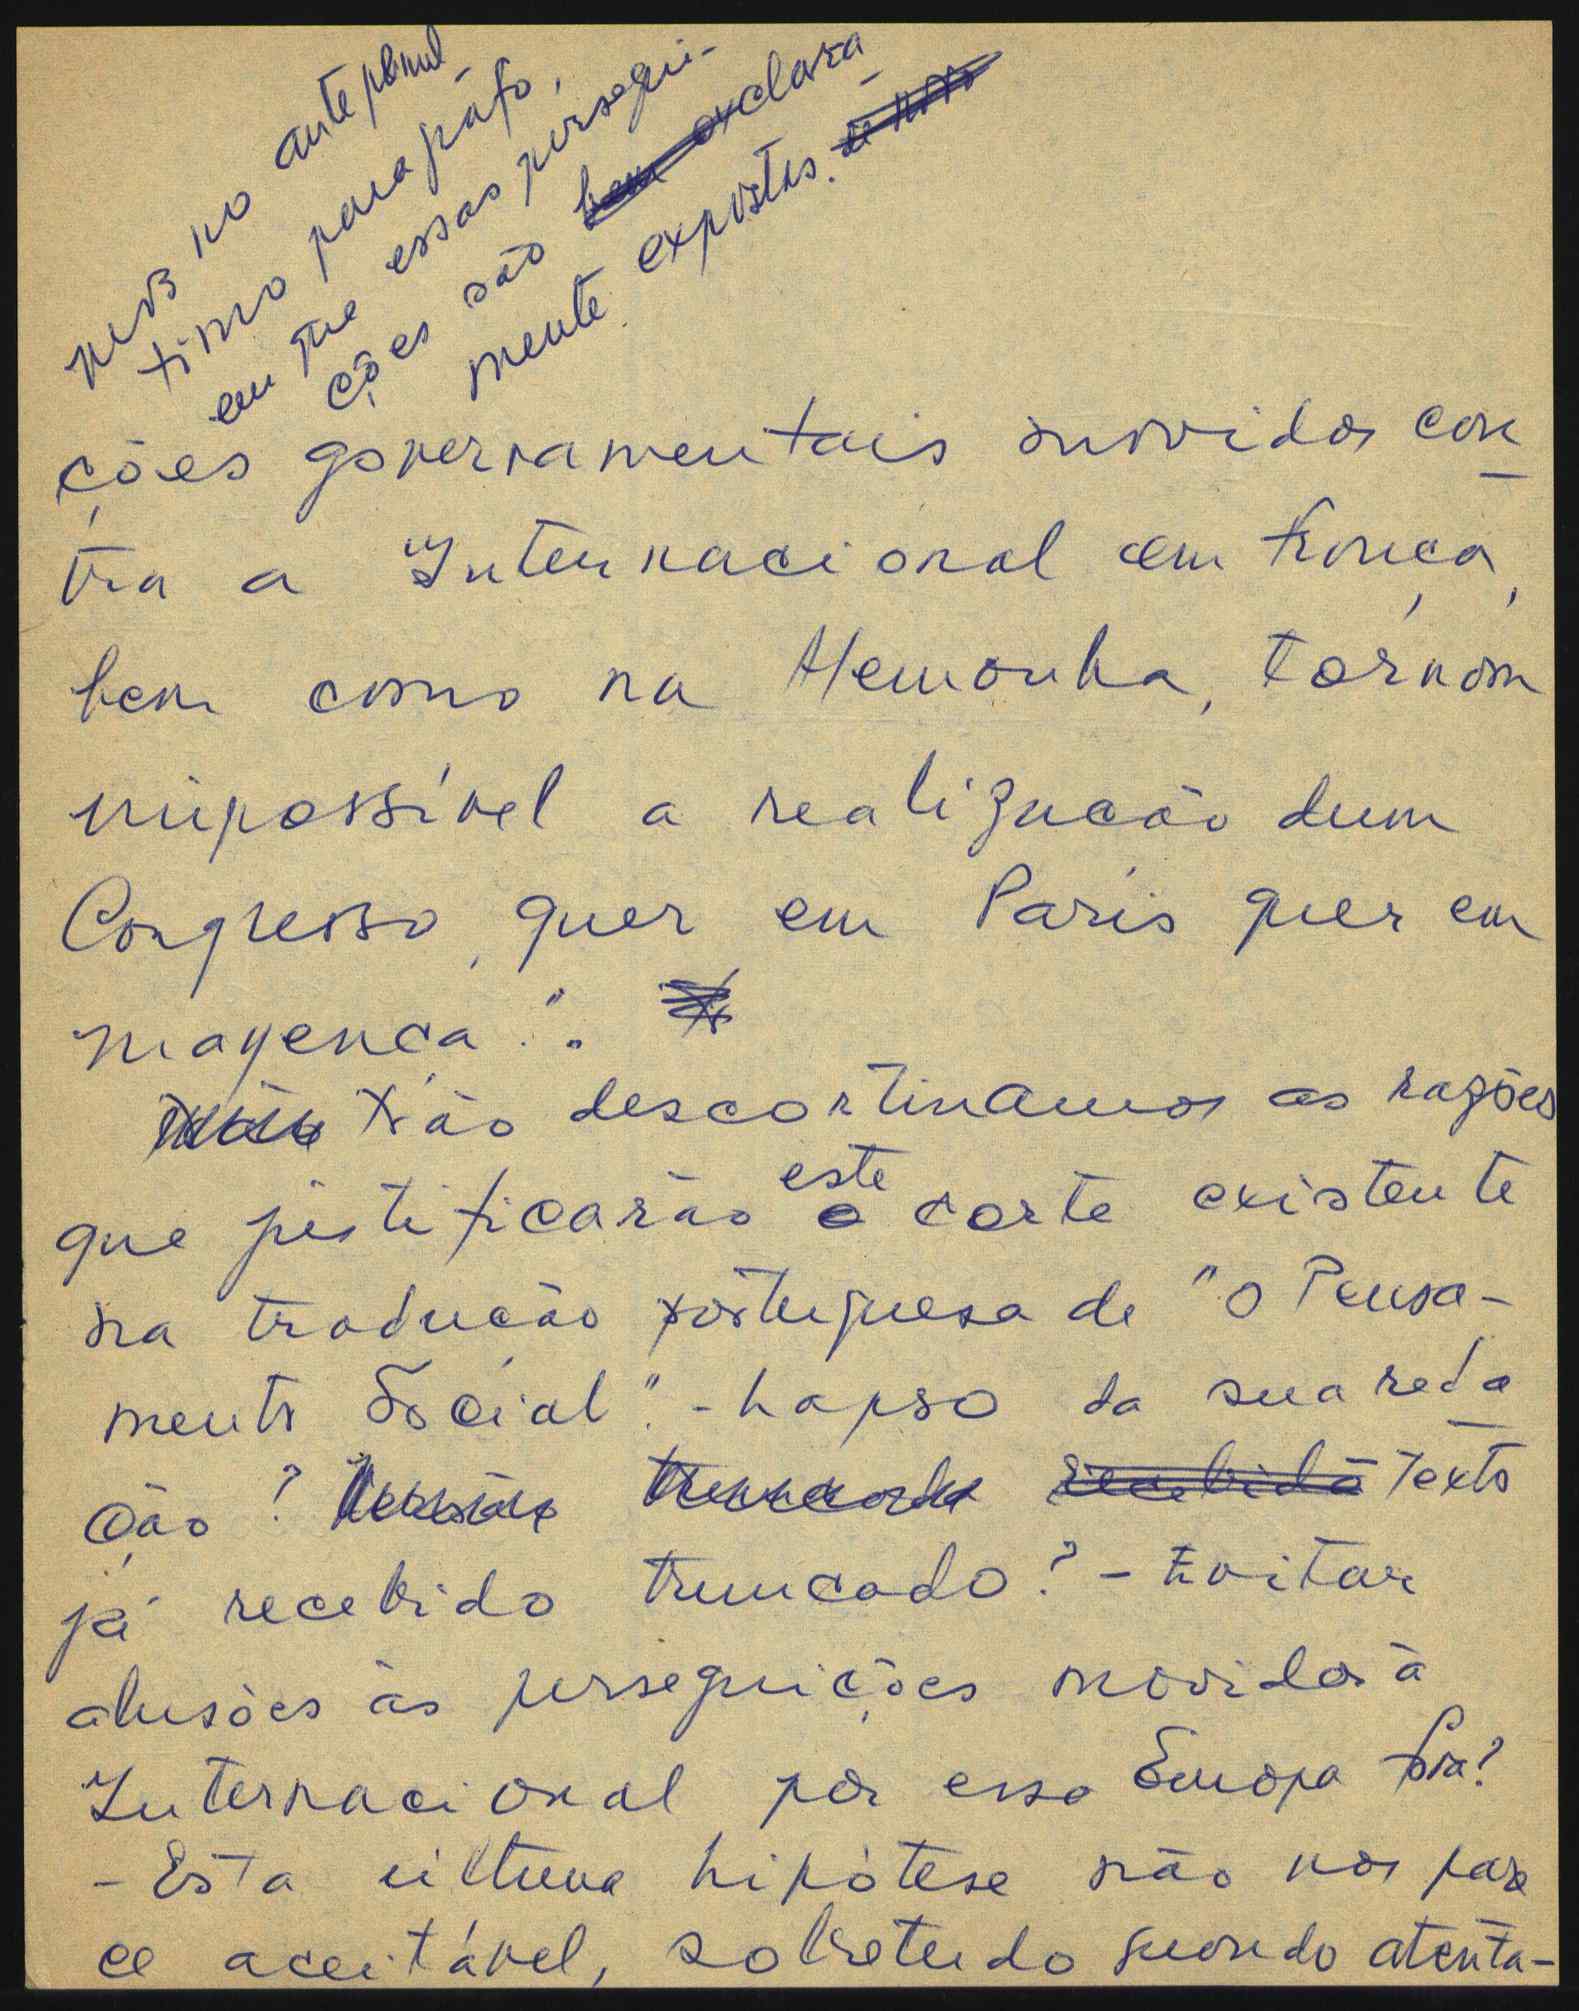 mos no antepenúl-
timo parágrafo,
em que essas persegui-
ções são clara-
mente expostas.
ções governamentais movidas con-
tra a Internacional em França,
bem como na Alemanha, tornam
impossível a realização dum
Congresso, quer em Paris quer em
Mayença".
Não descortinamos as razões
que justificarão este corte existente
na tradução portuguesa de "O Pensa-
mento Social". - Lapso da sua reda-
ção? Texto
já recebido truncado? - Evitar
alusões às perseguições movidas à
Internacional por essa Europa fora?
- Esta última hipótese não nos pare
ce aceitável, sobretudo quando atenta-